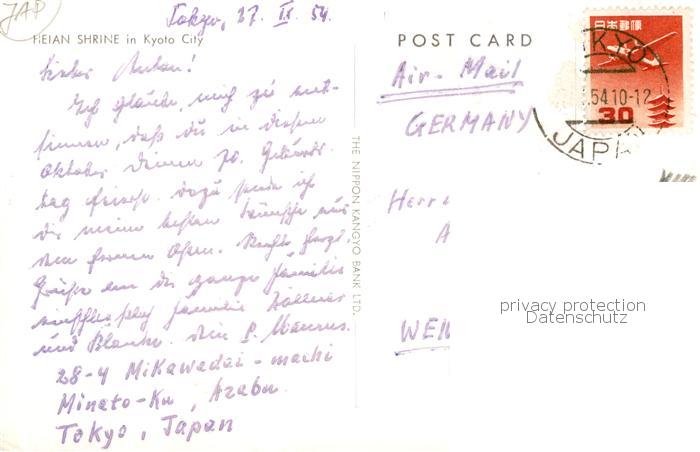 JAP
Tokyo, 27. IX. 54.
HEIAN SHRINE in Kyoto City
Lieber Anton!
Ich glaube, mich zu ent-
sinnen, daß du in diesem
Oktober deinen 70. Geburts
tag feierst. Dazu sende ich
dir meine besten Wünsche aus
dem fernen Osten. Recht herzl.
Grüße an die ganze Familie
einschließlich Familie Zöllner
und Blanke. Dein P. Maurus.
28-4 Mikawadai-machi
Minato-Ku, Azabu
Tokyo, Japan
THE NIPPON KANGYO BANK LTD.
POST CARD
Air-Mail
GERMANY
Herr
A
WEN
日本郵便
30
KYO
54.10-12
JAPA
privacy protection
Datenschutz